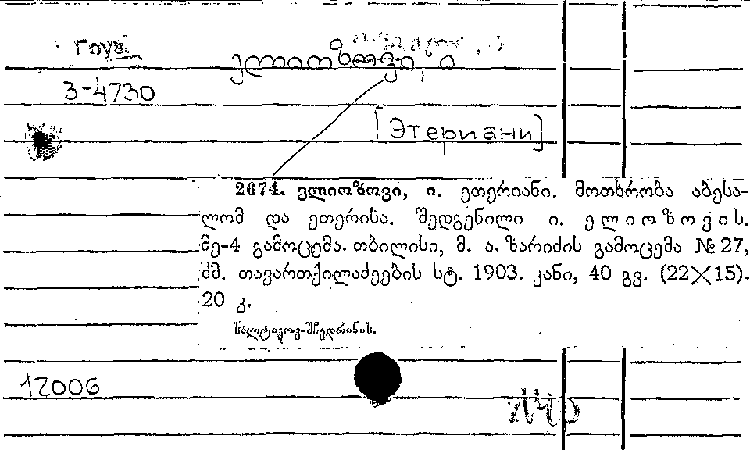 ГПУБ
3-4730
ელიოზოვი, ი
[Этериани]
2674. ელიოზოვი, ი. ეთერიანი. მოთხრობა აბესა-
ლომ და ეთერისა. შედგენილი ი. ელიოზოვის.
მე-4 გამოცემა. თბილისი, მ. ა. შარიძის გამოცემა № 27,
ძმ. თავართქილაძეების სტ. 1903. კანი, 40 გვ. (22×15).
20 კ.
სალტიკოვ-შჩედრინის.
17006